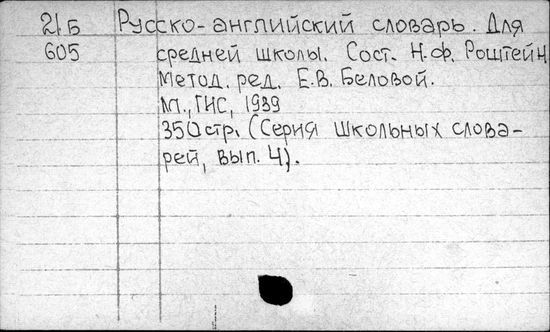 21Б Русско-английский словарь. Для
605 средней школы. Сост. Н.Ф. Роштейн
Метод. ред. Е.В. Беловой.
М., ГИС, 1939
350стр. (Серия школьных слова-
рей, вып. 4).